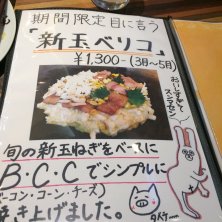 期間限定目に言う
「新玉ベリコ」
¥1,300-(3月〜5月)
おいしすぎて
スミマセン
旬の新玉ねぎをベースに
B・C・Cでシンプルに
ベーコン・コーン・チーズ)
焼き上げました。